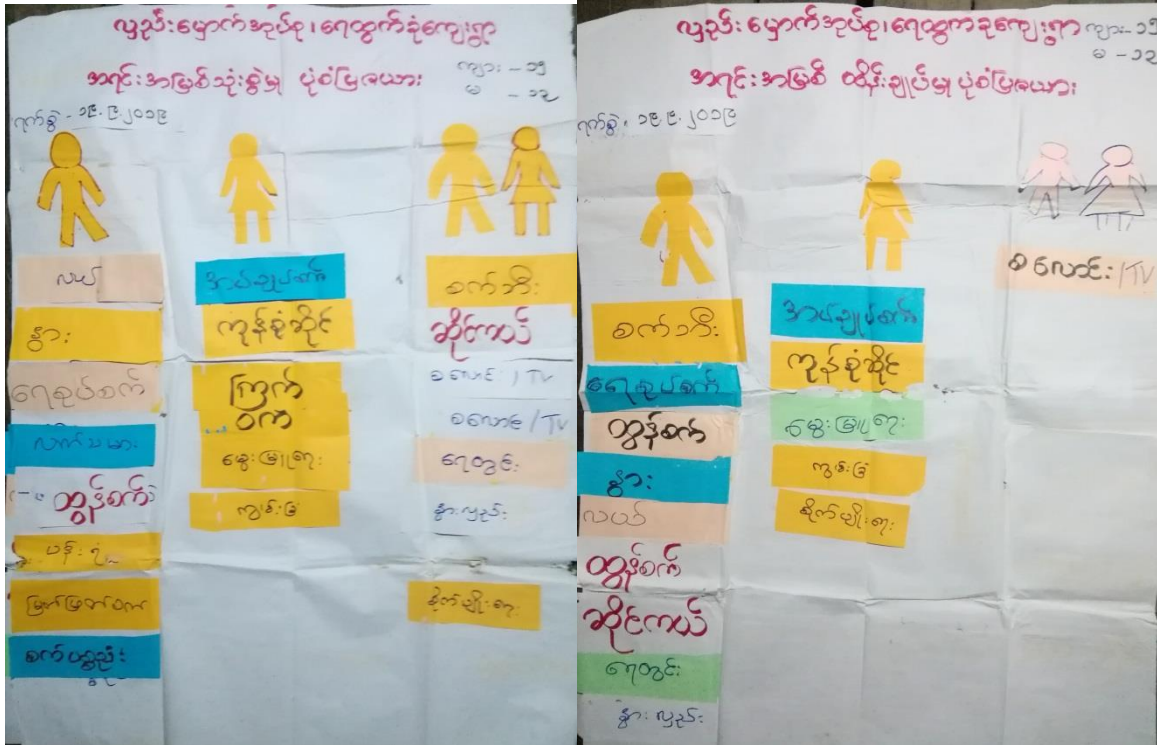 လှည်းမှောက်အုပ်စု၊ရေထွက်ခုံကျေးရွာ
အရင်းအမြစ်သုံးစွဲမှု ပုံစံပြဇယား
ကျား - ၁၅
မ - ၁၃
ရက်စွဲ - ၁၉.၉.၂၀၁၉
လယ်
နွား
ရေစုပ်စက်
လက်သမား
ထွန်စက်
ပန်းရံ
မြက်ဖြတ်စက်
အပ်ချုပ်စက်
ကုန်စုံဆိုင်
ကြက်
ဝက်
မွေးမြူရေး
ကျွန်းခြံ
စက်ဘီး
ဆိုင်ကယ်
စလောင်း / TV
စလောင်း / TV
ရေတွင်း
နွားလှည်း
စိုက်ပျိုးရေး
လှည်းမှောက်အုပ်စု၊ရေထွက်ခုံကျေးရွာ
ကျား - ၁၅
မ - ၁၃
အရင်းအမြစ် ထိန်းချုပ်မှု ပုံစံပြဇယား
ရက်စွဲ - ၁၉.၉.၂၀၁၉
စက်ဘီး
ရေစုပ်စက်
ထွန်စက်
နွား
လယ်
ထွန်စက်
ဆိုင်ကယ်
ရေတွင်း
နွားလှည်း
အပ်ချုပ်စက်
ကုန်စုံဆိုင်
မွေးမြူရေး
ကျွန်းခြံ
စိုက်ပျိုးရေး
စလောင်း / TV